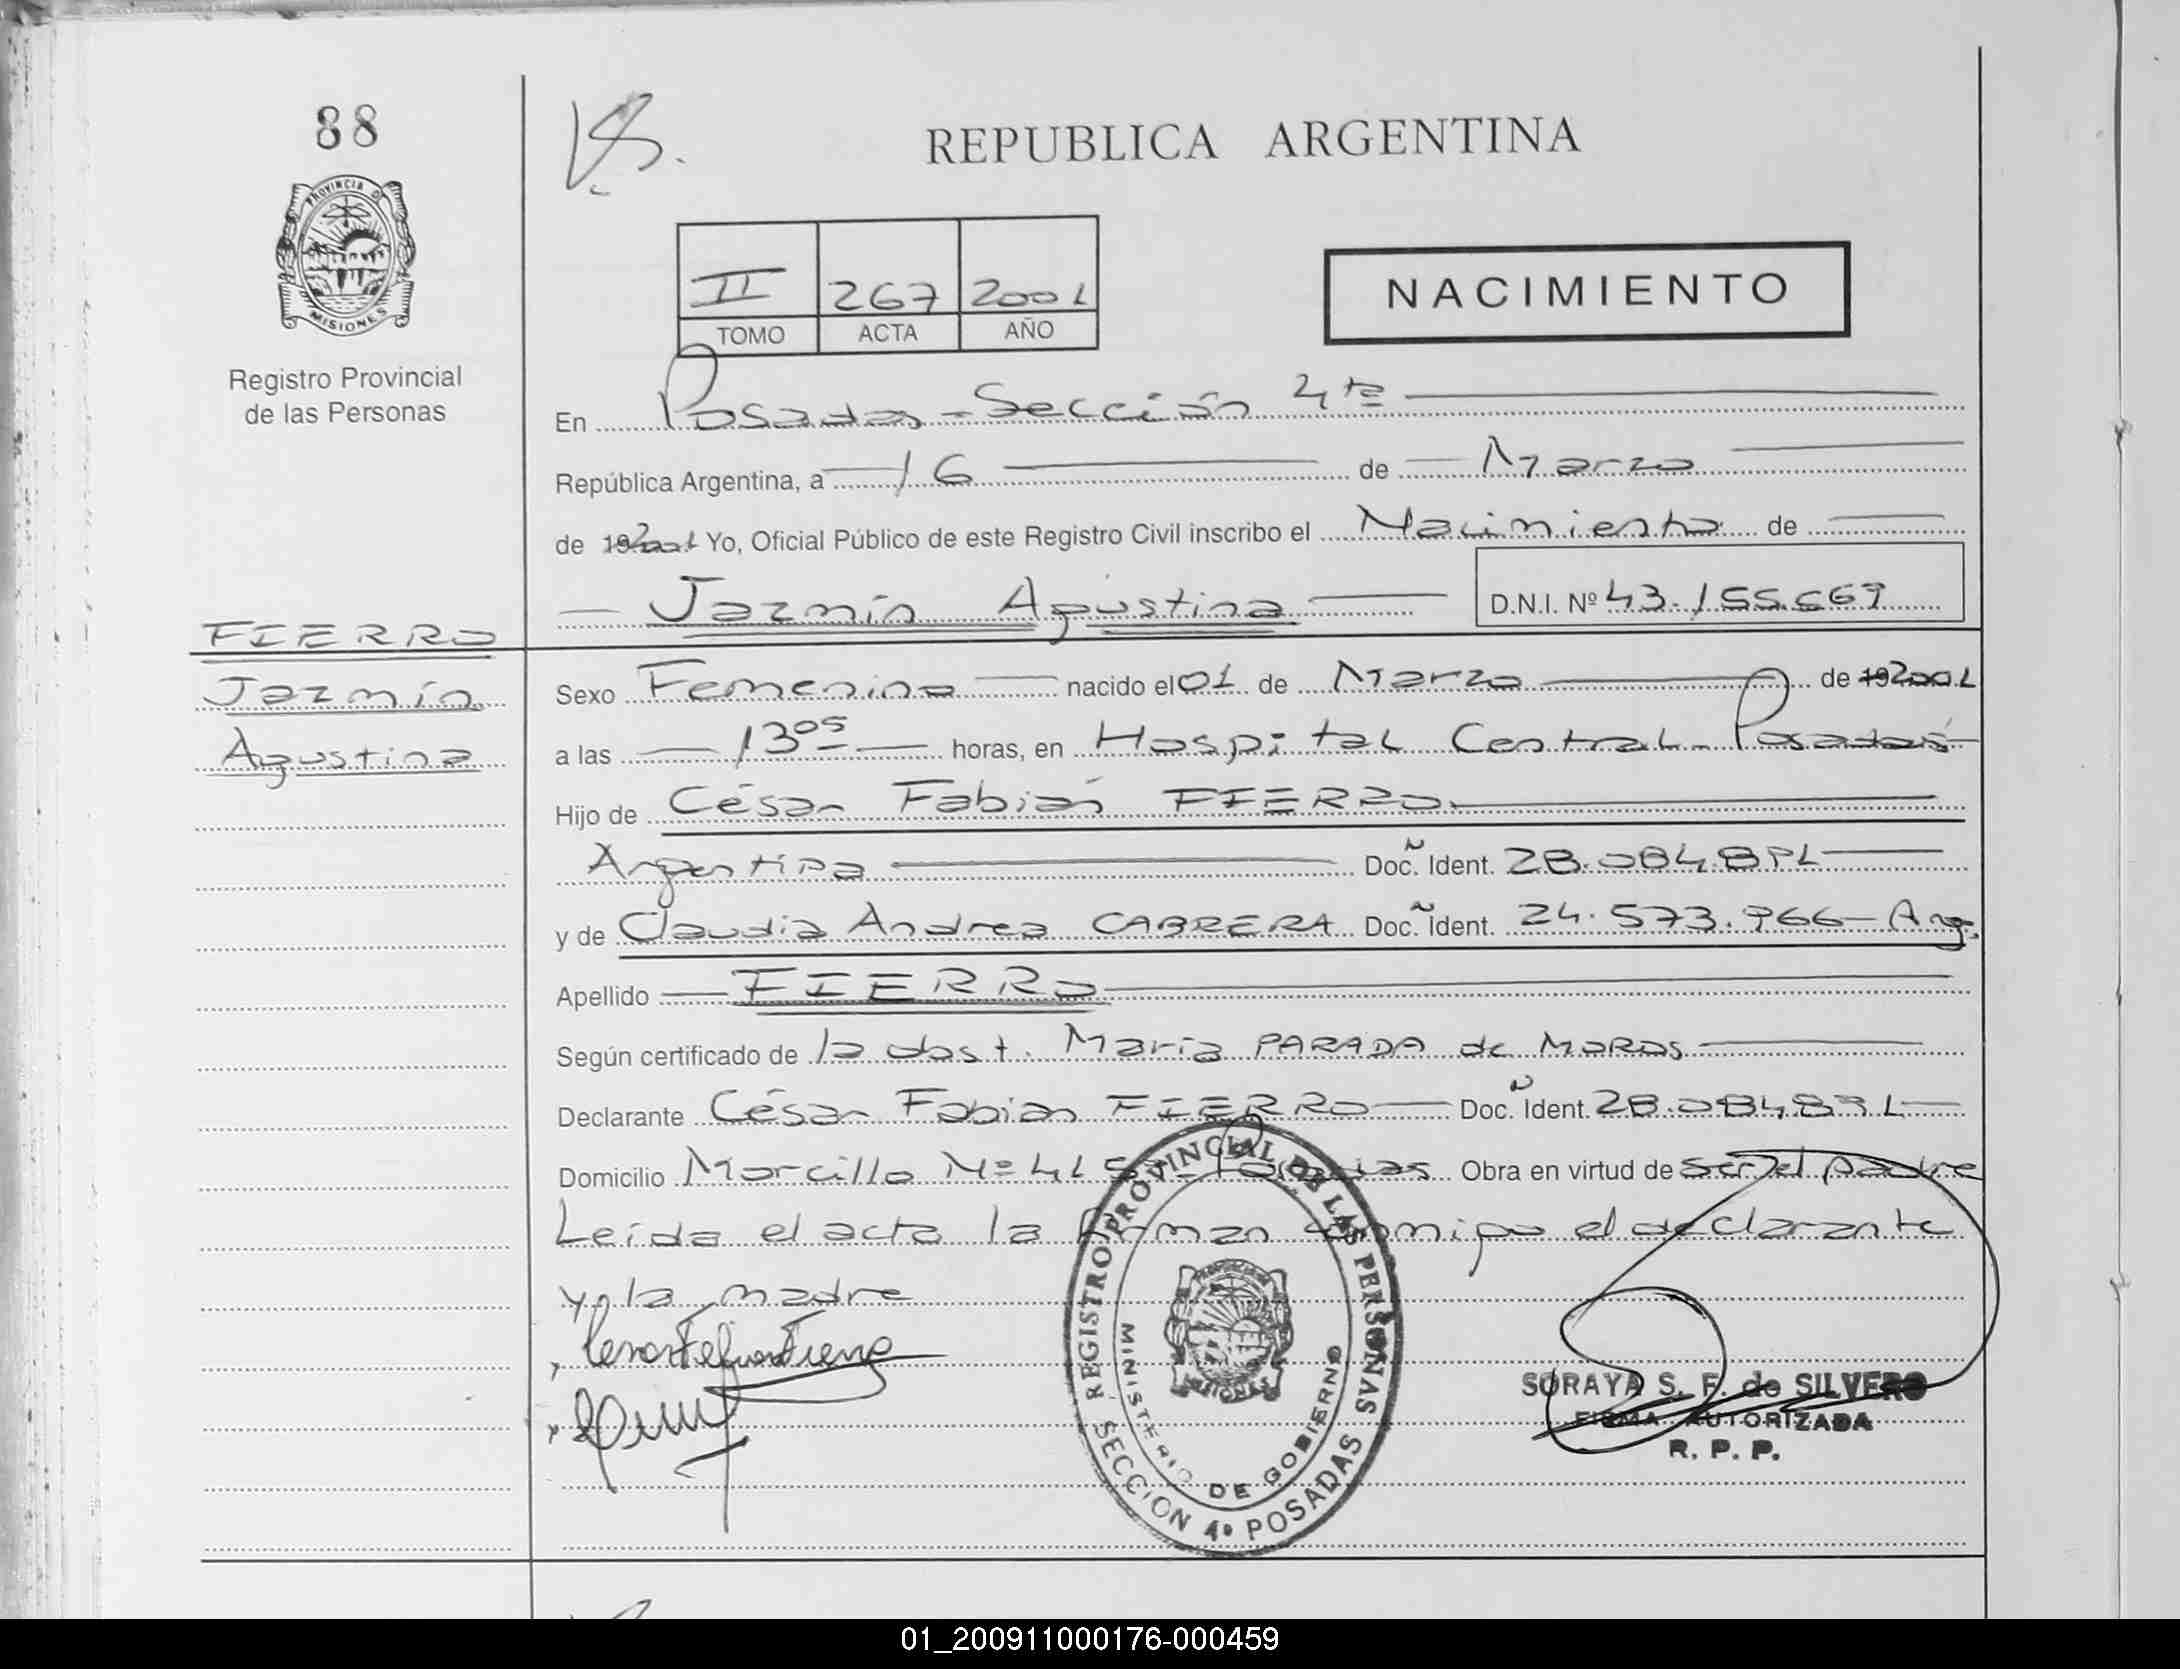 88
PROVINCIA DE
MISIONES
Registro Provincial
de las Personas
REPUBLICA ARGENTINA
II 267 2001
TOMO ACTA AÑO
NACIMIENTO
En Posadas - Sección 4ta
República Argentina, a 16 de Marzo
de 192001 Yo, Oficial Público de este Registro Civil inscribo el Nacimiento de
Jazmín Agustina D.N.I. Nº 43.155.669
FIERRO
Jazmín
Agustina
Sexo Femenino nacido el 01 de Marzo de 192001
a las 13 05 horas, en Hospital Central - Posadas
Hijo de César Fabián FIERRO
Argentina Doc. Ident. 28.084.891
y de Claudia Andrea CABRERA Doc. Ident. 24.573.966 - Arg.
Apellido FIERRO
Según certificado de la obst. María PARADA de MOROS
Declarante César Fabián FIERRO Doc. Ident. 28.084.891
Domicilio Morcillo Nº 41 Posadas Obra en virtud de ser el padre
Leída el acta la firman conmigo el declarante
y la madre
REGISTRO PROVINCIAL DE LAS PERSONAS
MINISTERIO DE GOBIERNO
SECCION 4º POSADAS
SORAYA S. F. de SILVERO
FIRMA AUTORIZADA
R. P. P.
01_200911000176-000459